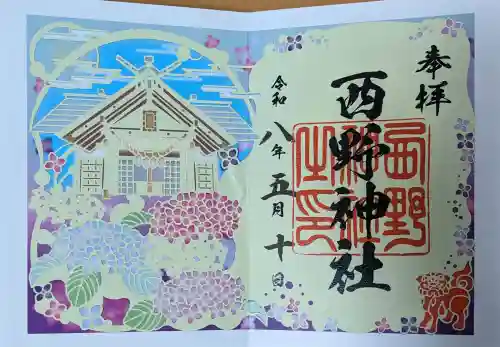 奉拝
西野神社
西野神社之印
令和八年五月十日